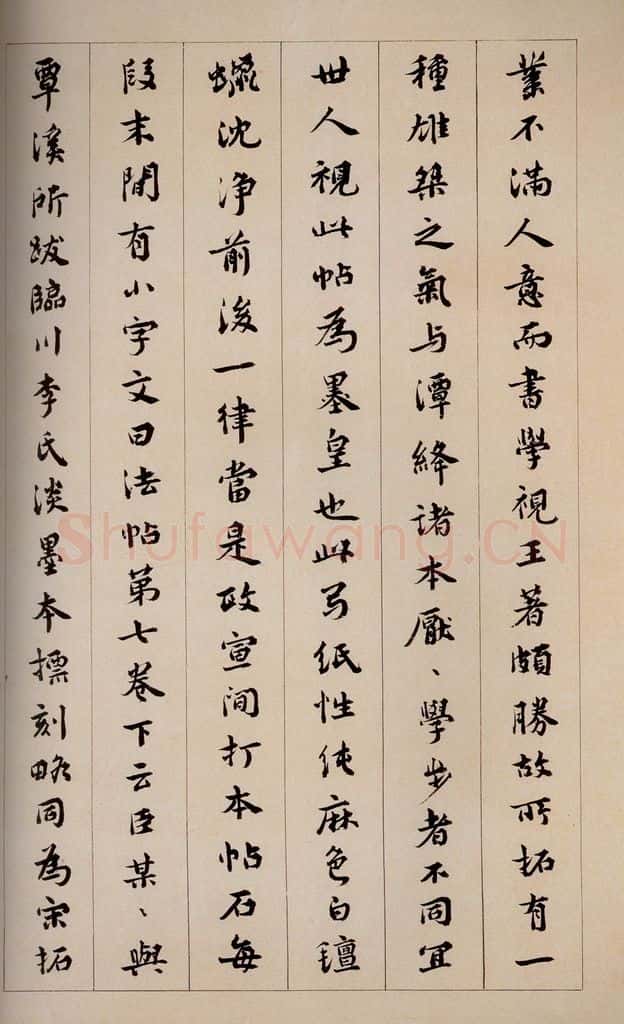 業不滿人意而書學視王著頗勝故所拓有一
種雄桀之氣与潭絳諸本厭〻學步者不同宜
世人視此帖為墨皇也此弓紙性純麻色白
蠟沈淨前後一律當是政宣間打本帖石每
段末間有小字文曰法帖第七卷下云臣某〻與
覃溪所跋臨川李氏淡墨本標刻略同為宋拓
Shufawang.CN